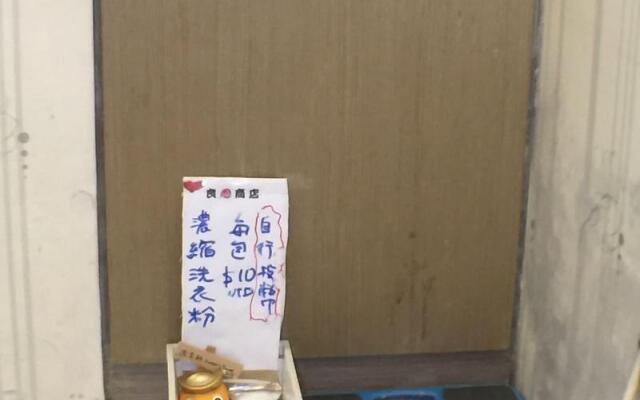 良心商店
自行投幣
每包
$10
NTD
濃縮洗衣粉